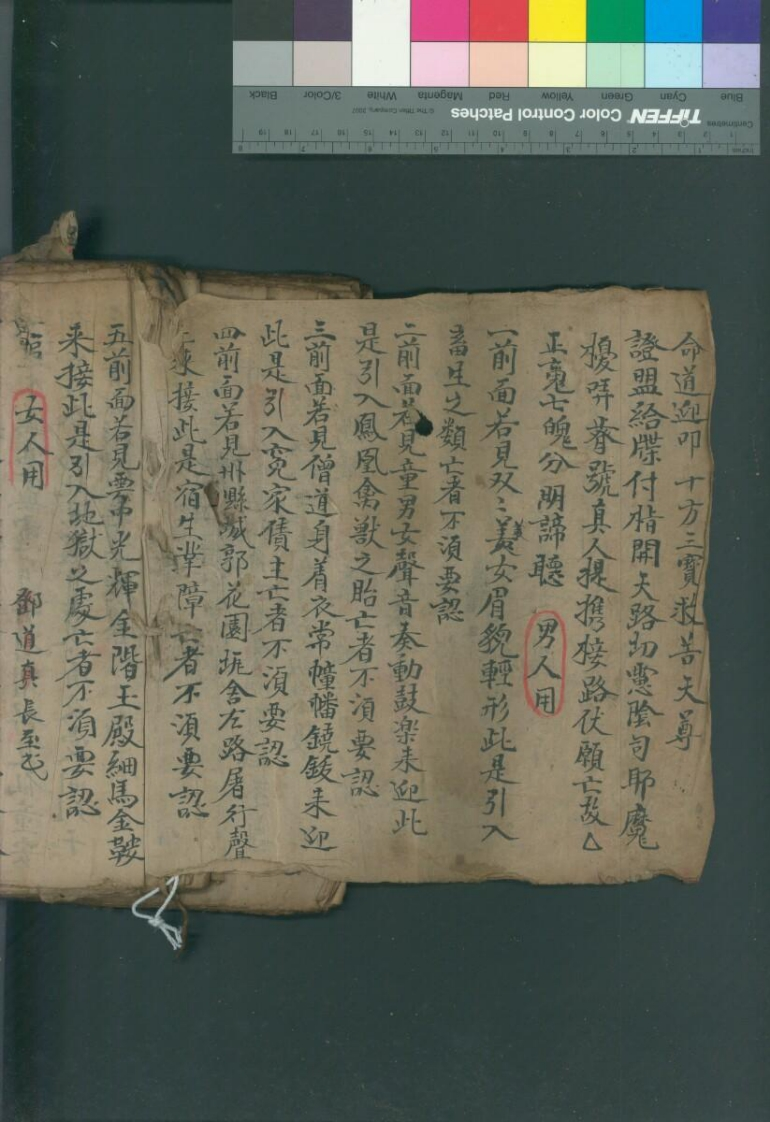 命道迎叩十方三寶救苦天尊
證盟給牒付脂開天路切慮陰司耶魔
真人提携接路伏願亡故△
正䰟七魄分明諦聽
男人用
一前面若見双〻美女眉貌輕形此是引入
畜生之類亡者不須要認
二前面若見童男女聲音奏動鼓楽来迎此
是引入鳳凰禽獸之胎亡者不須要認
三前面若見僧道身着衣常幢幡鐃鈸来迎
此是引入寃家債主亡者不須要認
四前面若見州縣城郭花園 舍左路屠行聲
来接此是宿生業障亡者不須要認
五前面若見雲中光輝金階玉殿細馬金鞍
来接此是引入地獄之處亡者不須要認
女人用
鄧道真長
Blue
Cyan
Green
Yellow
Red
Magenta
White
3/Color
Black
TIFFEN Color Control Patches
© The Tiffen Company, 2007
Centimetres
Inches